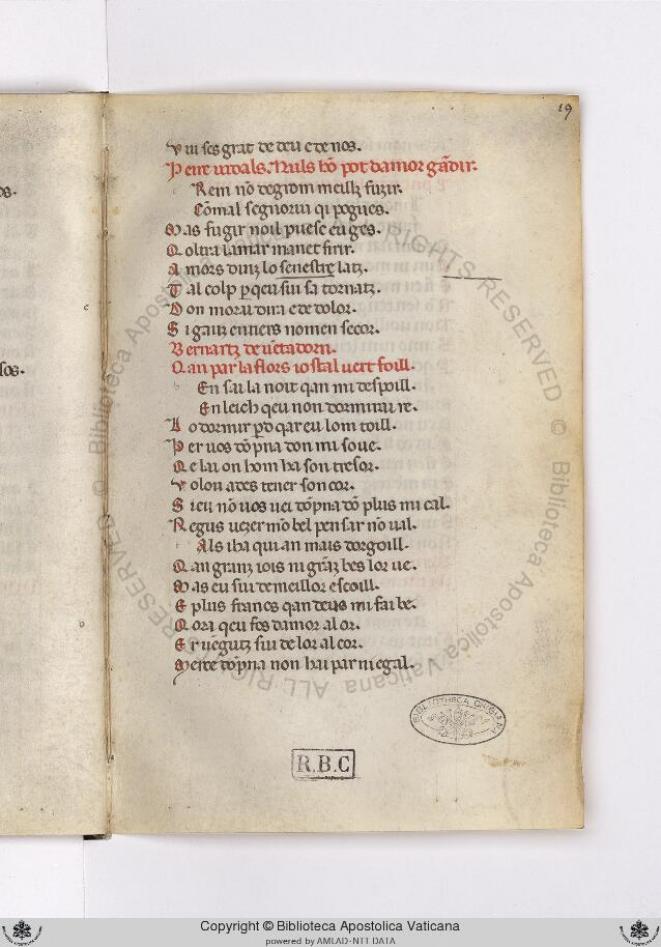 19
V iu ses grat de deu e de nos.
Peire uidals. Nuls hō pot damor gādir.
Rem nō degrom meillz fuzir.
Cōmal segnoriu qi pogues.
M as fugir noil puesc eu ges.
Q oltra la mar mane t ferir.
A mors dinz lo senestre latz.
T al colp pqeu sui sa tornatz.
D on morai dira e de dolor.
S i gauz enners no men secor.
Bernartz de uētadorn.
Q an par la flors iostal uert foill.
En sai la noit qan mi despoill.
En leich qeu non dormirai re.
L o dormir pd qar eu lom toill.
P er uos dōpna don mi soue.
Q e lai on hom ha son tresor.
V ol on ades tener son cor.
S ieu nō uos uei dōpna dō plus mi cal.
N egus uezer mō bel pensar nō ual.
Als iha qui an mais dorgoill.
Q an granz iois ni grāz bes lor ue.
M as eu sui de meillor escoill.
E plus francs qan deus mi fai be.
Q ora qeu fos damor al or.
E r uēgutz sui de lor al cor.
M erce dōpna non hai par ni egal.
BIBLIOTHECA CHIGIANA
R.B.C
os.
e
sos.
© Biblioteca Apostolica Vaticana ALL RIGHTS RESERVED
Copyright © Biblioteca Apostolica Vaticana
powered by AMLAD-NTT DATA